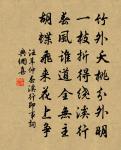 竹外夭桃分外明
一枝折得繞溪行
春風誰道全無主
胡蝶飛來花上爭
汪仲春溪行即事詞
典個喜